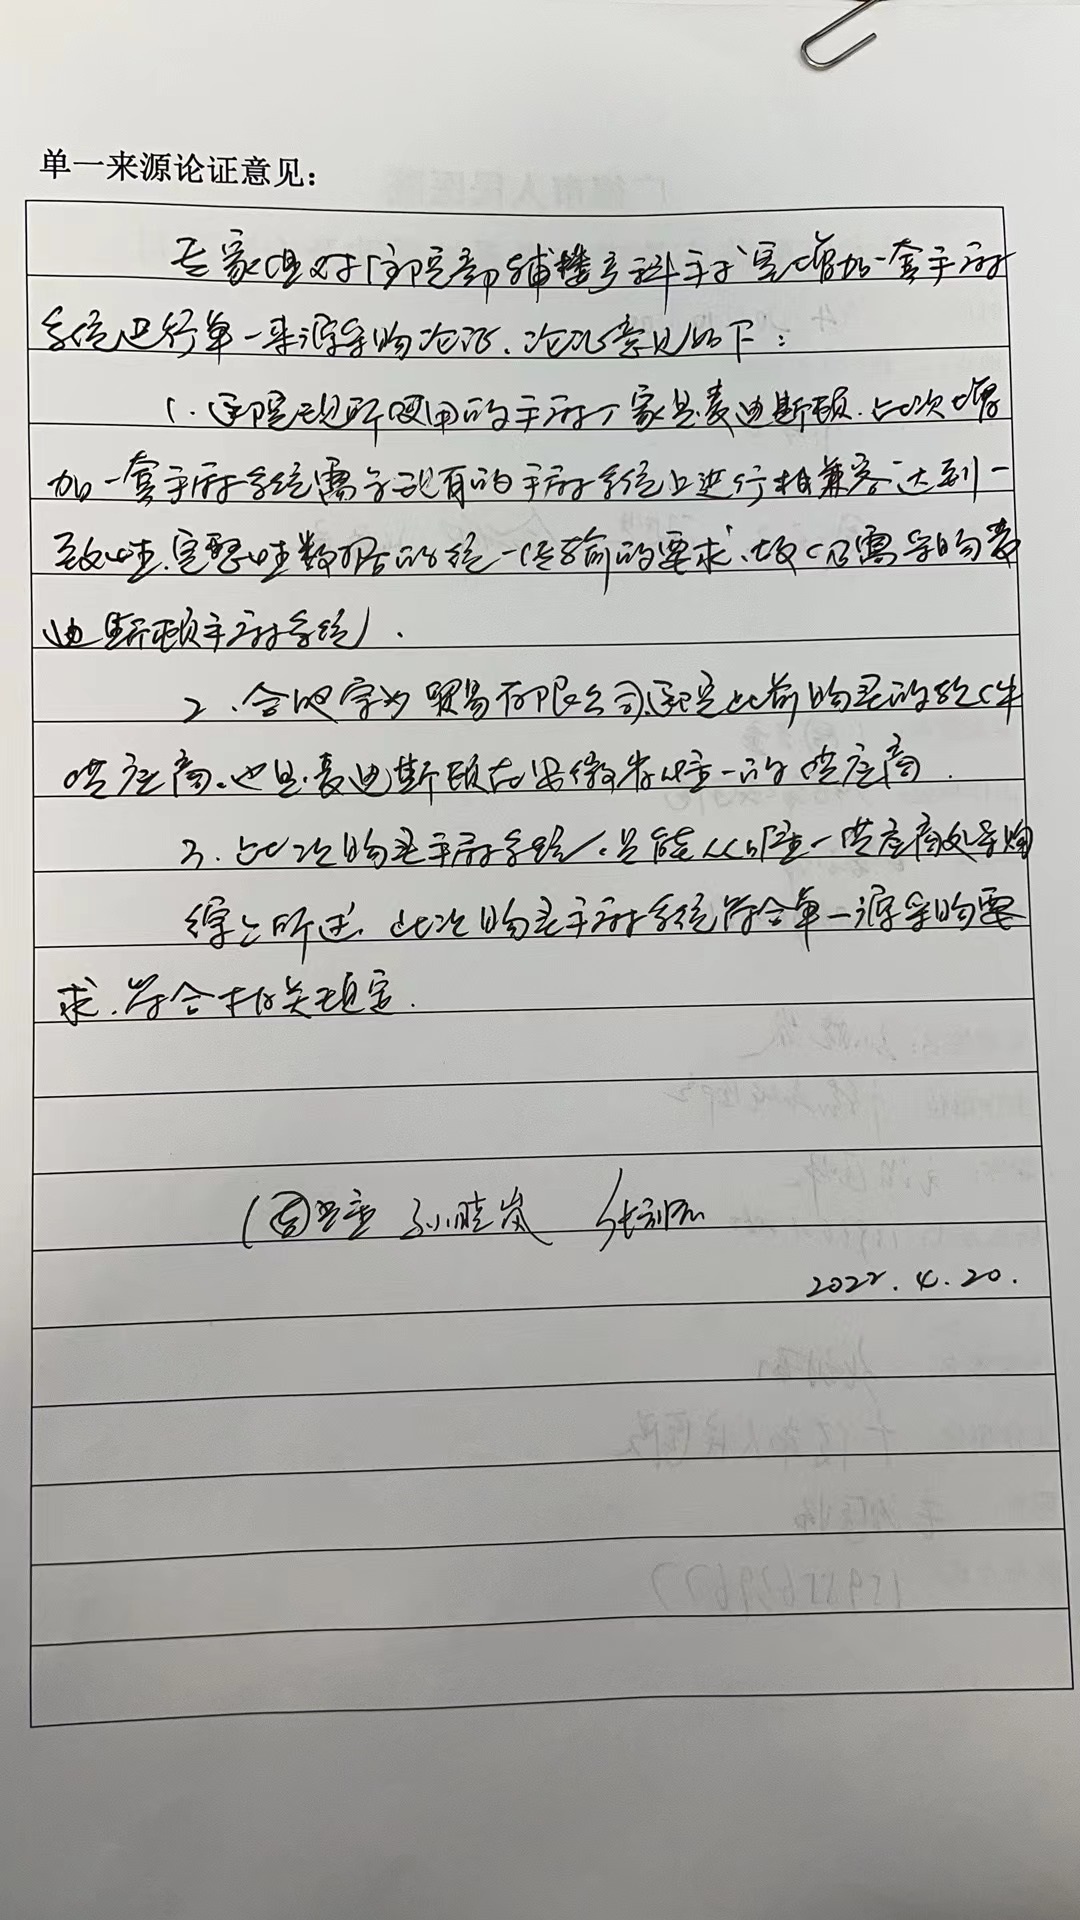 单一来源论证意见：
专家组对门诊部辅楼专科手术室增加一套手麻
系统进行单一来源采购论证，论证意见如下：
1、医院现所使用的手麻厂家是麦迪斯顿，此次增
加一套手麻系统需与现有的手麻系统上进行相兼容达到一
致性、完整性数据的统一传输的要求、故（仍需采购麦
迪斯顿手麻系统）．
2、合肥 贸易有限公司医院此前购买的软件
供应商、也是麦迪斯顿在安徽省唯一的供应商．
3、此次购买手麻系统，只能从唯一供应商处采购
综上所述、此次购买手麻系统符合单一源采购的要
求、符合相关规定．
孙晓岚
2022.4.20.